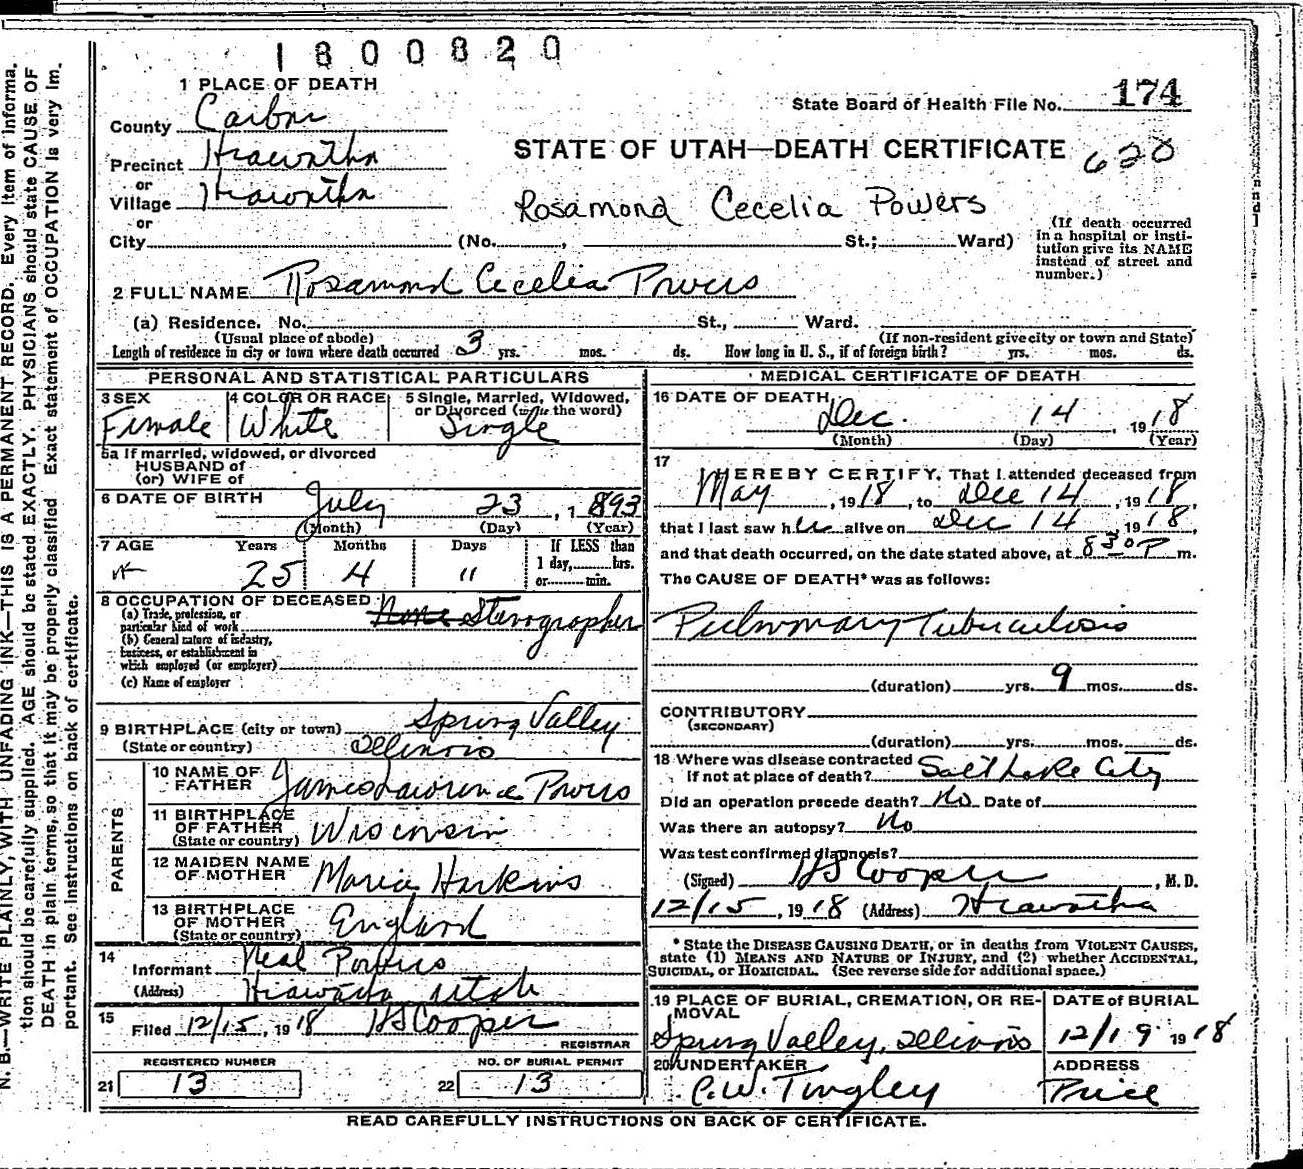 1800820
1 PLACE OF DEATH
State Board of Health File No. 174
County Carbon
STATE OF UTAH—DEATH CERTIFICATE 620
Precinct Hiawatha
or
Village Hiawatha
Rosamond Cecelia Powers
or
City (No. , St.; Ward)
(If death occurred
in a hospital or insti-
tution give its NAME
instead of street and
number.)
2 FULL NAME Rosamond Cecelia Powers
(a) Residence. No. St., Ward.
(Usual place of abode) (If non-resident give city or town and State)
Length of residence in city or town where death occurred 3 yrs. mos. ds. How long in U. S., if of foreign birth? yrs. mos. ds.
PERSONAL AND STATISTICAL PARTICULARS
3 SEX 4 COLOR OR RACE 5 Single, Married, Widowed,
or Divorced (write the word)
Female White Single
5a If married, widowed, or divorced
HUSBAND of
(or) WIFE of
6 DATE OF BIRTH July 23, 1893
(Month) (Day) (Year)
7 AGE Years Months Days If LESS than
1 day, hrs.
or min.
25 4 11
8 OCCUPATION OF DECEASED
(a) Trade, profession, or
particular kind of work None Stenographer
(b) General nature of industry,
business, or establishment in
which employed (or employer)
(c) Name of employer
9 BIRTHPLACE (city or town) Spring Valley
(State or country) Illinois
PARENTS
10 NAME OF
FATHER James Lawrence Powers
11 BIRTHPLACE
OF FATHER
(State or country) Wisconsin
12 MAIDEN NAME
OF MOTHER Maria Harkins
13 BIRTHPLACE
OF MOTHER
(State or country) England
14
Informant Neal Powers
(Address) Hiawatha Utah
15
Filed 12/15, 1918 HS Cooper
REGISTRAR
REGISTERED NUMBER NO. OF BURIAL PERMIT
21 13 22 13
MEDICAL CERTIFICATE OF DEATH
16 DATE OF DEATH
Dec. 14, 1918
(Month) (Day) (Year)
17
I HEREBY CERTIFY, That I attended deceased from
May, 1918, to Dec 14, 1918,
that I last saw her alive on Dec 14, 1918,
and that death occurred, on the date stated above, at 830P m.
The CAUSE OF DEATH* was as follows:
Pulmonary Tuberculosis
(duration) yrs. 9 mos. ds.
CONTRIBUTORY
(SECONDARY)
(duration) yrs. mos. ds.
18 Where was disease contracted
if not at place of death? Salt Lake City
Did an operation precede death? No Date of
Was there an autopsy? No
Was test confirmed diagnosis?
(Signed) HS Cooper, M. D.
12/15, 1918 (Address) Hiawatha
* State the DISEASE CAUSING DEATH, or in deaths from VIOLENT CAUSES,
state (1) MEANS AND NATURE OF INJURY, and (2) whether ACCIDENTAL,
SUICIDAL, or HOMICIDAL. (See reverse side for additional space.)
19 PLACE OF BURIAL, CREMATION, OR RE-
MOVAL
Spring Valley, Illinois
DATE of BURIAL
12/19 1918
20 UNDERTAKER
C.W. Tingley
ADDRESS
Price
READ CAREFULLY INSTRUCTIONS ON BACK OF CERTIFICATE.
N. B.—WRITE PLAINLY, WITH UNFADING INK—THIS IS A PERMANENT RECORD. Every item of informa-
tion should be carefully supplied. AGE should be stated EXACTLY. PHYSICIANS should state CAUSE OF
DEATH in plain terms, so that it may be properly classified. Exact statement of OCCUPATION is very im-
portant. See instructions on back of certificate.